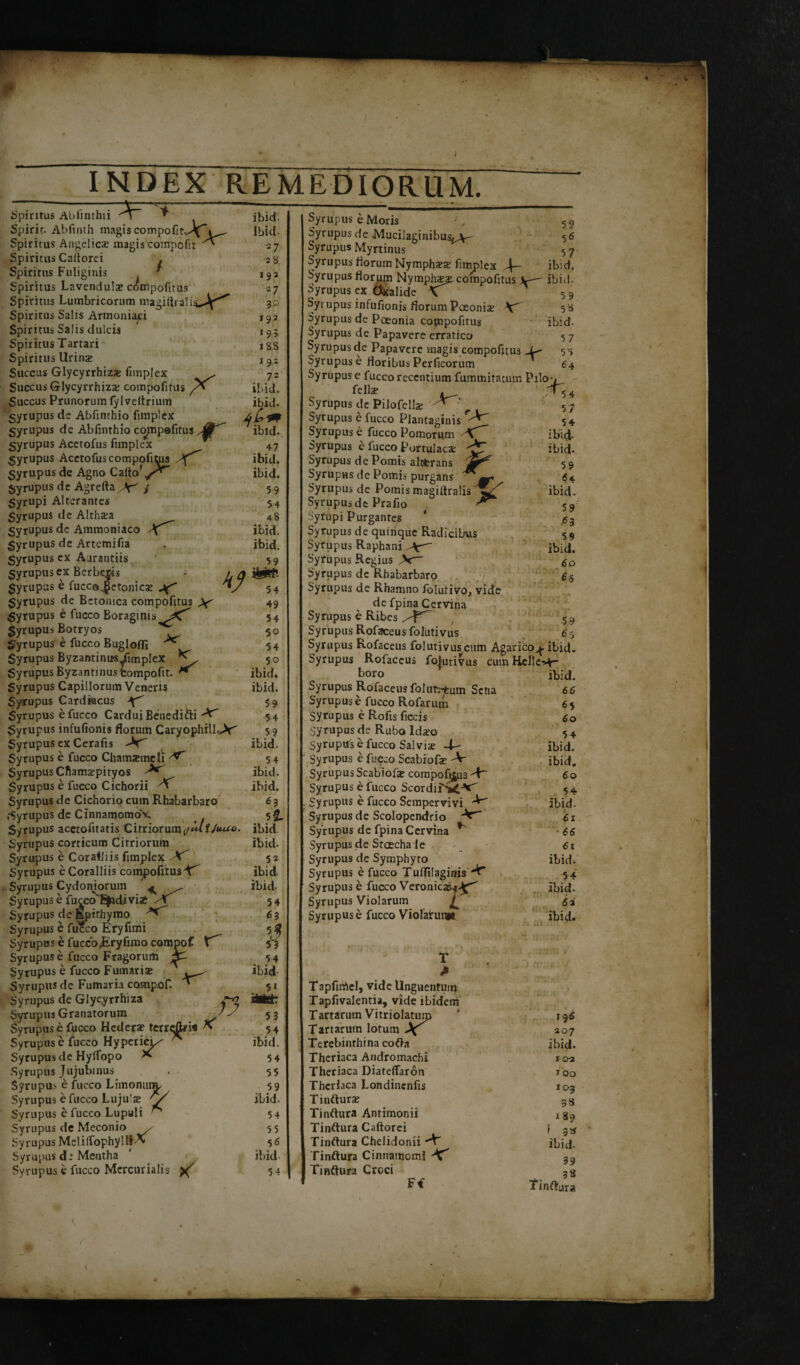 INDEX REMEDIORUM.
Spiritus Absinthii ibid.
Spirit. Absinth magis composit. ibid.
Spiritus Angelicæ magis composit 27
Spiritus Castorei 28
Spiritus Fuliginis 192
Spiritus Lavendulæ compositus 27
Spiritus Lumbricorum magistralis 30
Spiritus Salis Armoniaci 192
Spiritus Salis dulcis 193
Spiritus Tartari 188
Spiritus Urinæ 192
Succus Glycyrrhizæ simplex 72
Succus Glycyrrhizæ compositus ibid.
Succus Prunorum sylvestrium ibid.
Syrupus de Absinthio simplex
Syrupus de Absinthio compositus ibid.
Syrupus Acetosus simplex 47
Syrupus Acetosus compositus ibid.
Syrupus de Agno Casto ibid.
Syrupus de Agresta 59
Syrupi Alterantes 54
Syrupus de Althæa 48
Syrupus de Ammoniaco ibid.
Syrupus de Artemisia ibid.
Syrupus ex Aurantiis 59
Syrupus ex Berberis 49
Syrupus è succo Betonicæ 54
Syrupus de Betonica compositus 49
Syrupus è succo Boraginis 54
Syrupus Botryos 50
Syrupus è succo Buglossi 54
Syrupus Byzantinus simplex 50
Syrupus Byzantinus composit. ibid.
Syrupus Capillorum Veneris ibid.
Syrupus Cardiacus 59
Syrupus è succo Cardui Benedicti 54
Syrupus infusionis florum Caryophill. 59
Syrupus ex Cerasis ibid.
Syrupus è succo Chamæmeli 54
Syrupus Chamæpityos ibid.
Syrupus è succo Cichorii ibid.
Syrupus de Cichorio cum Rhabarbaro 63
Syrupus de Cinnamomo 52
Syrupus acetositatis Citriorum ibid.
Syrupus corticum Citriorum ibid.
Syrupus è Coralliis simplex 52
Syrupus è Coralliis compositus ibid.
Syrupus Cydoniorum ibid.
Syrupus è succo Endiviæ 54
Syrupus de Epithymo 63
Syrupus è succo Erysimi
Syrupus è succo Erysimo compos. 53
Syrupus è succo Fragorum 54
Syrupus è succo Fumariæ ibid.
Syrupus de Fumaria compos. 51
Syrupus de Glycyrrhiza 53
Syrupus Granatorum 53
Syrupus è succo Hederæ terrestris 54
Syrupus è succo Hyperici ibid.
Syrupus de Hyssopo 54
Syrupus Jujubinus 55
Syrupus è succo Limonum 59
Syrupus è succo Lujulæ ibid.
Syrupus è succo Lupuli 54
Syrupus de Meconio 55
Syrupus Melissophylli 56
Syrupus de Mentha ibid.
Syrupus è succo Mercurialis 54
Syrupus è Moris 59
Syrupus de Mucilaginibus 56
Syrupus Myrtinus 57
Syrupus florum Nymphææ simplex ibid.
Syrupus florum Nymphææ compositus ibid.
Syrupus ex Oxalide 59
Syrupus infusionis florum Pœoniæ 58
Syrupus de Pœonia compositus ibid.
Syrupus de Papavere erratico 57
Syrupus de Papavere magis compositus 55
Syrupus è floribus Persicorum 64
Syrupus e succo recentium summitatum Pilo-
sellæ 54
Syrupus de Pilosellæ 57
Syrupus è succo Plantaginis 54
Syrupus è succo Pomorum ibid.
Syrupus è succo Portulacæ ibid.
Syrupus de Pomis alterans 59
Syrupus de Pomis purgans 64
Syrupus de Pomis magistralis ibid.
Syrupus de Prasio 59
Syrupi Purgantes 63
Syrupus de quinque Radicibus 59
Syrupus Raphani ibid.
Syrupus Regius 60
Syrupus de Rhabarbaro 65
Syrupus de Rhamno solutivo, vide
de spina Cervina
Syrupus è Ribes 59
Syrupus Rosaceus solutivus 65
Syrupus Rosaceus solutivus cum Agarico ibid.
Syrupus Rosaceus solutivus cum Helle-
boro ibid.
Syrupus Rosaceus solut. cum Sena 66
Syrupus è succo Rosarum 65
Syrupus è Rosis siccis 60
Syrupus de Rubo Idæo 54
Syrupus è succo Salviæ ibid.
Syrupus è succo Scabiosæ ibid.
Syrupus Scabiosæ compositus 60
Syrupus è succo Scordii 54
Syrupus è succo Sempervivi ibid.
Syrupus de Scolopendrio 61
Syrupus de spina Cervina 66
Syrupus de Stœchade 61
Syrupus de Symphyto ibid.
Syrupus è succo Tussilaginis 54
Syrupus è succo Veronicæ ibid.
Syrupus Violarum 62
Syrupus è succo Violarum ibid.
T
Tapsimel, vide Unguentum
Tapsivalentia, vide ibidem
Tartarum Vitriolatum 196
Tartarum lotum 207
Terebinthina cocta ibid.
Theriaca Andromachi 102
Theriaca Diatessarôn 100
Theriaca Londinensis 103
Tincturæ 38
Tinctura Antimonii 189
Tinctura Castorei 38
Tinctura Chelidonii ibid.
Tinctura Cinnamomi 39
Tinctura Croci 38
Ff Tinctura